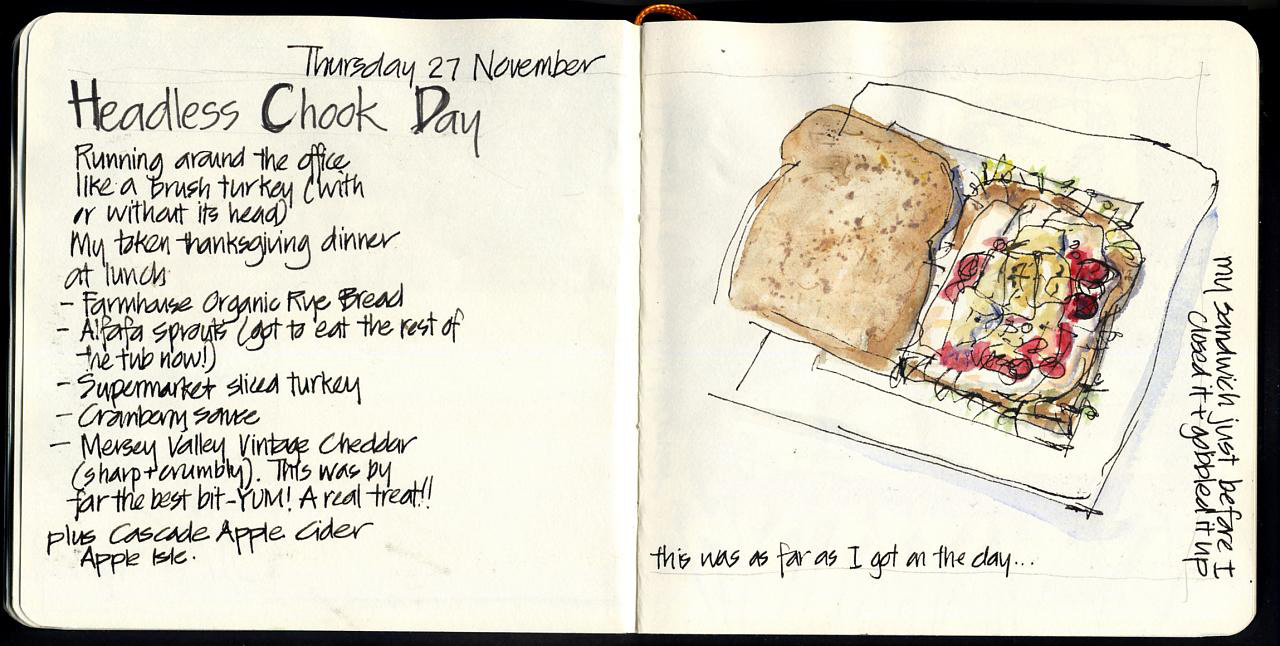 Thursday 27 November
Headless Chook Day
Running around the office
like a brush turkey (with
or without its head)
My token thanksgiving dinner
at lunch
- Farmhouse Organic Rye Bread
- Alfafa sprouts (got to eat the rest of
the tub now!)
- Supermarket sliced turkey
- Cranberry sauce
- Mersey Valley Vintage Cheddar
(sharp + crumbly). This was by
far the best bit - YUM! A real treat!!
plus Cascade Apple Cider
Apple Isle.
my sandwich just before I
closed it + gobbled it up
this was as far as I got on the day...